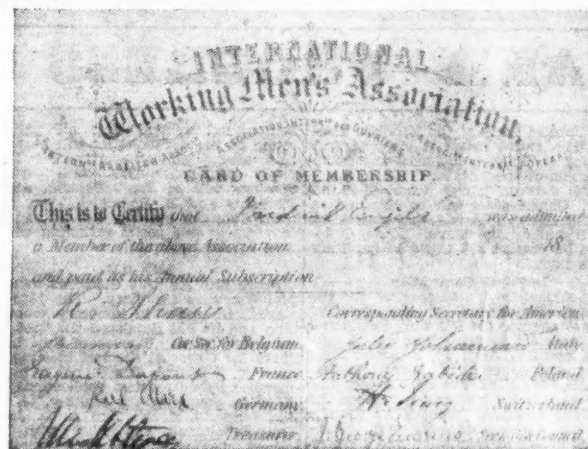 INTERNATIONAL
Working Men's Association.
ASSOCIATION INTERN. DES OUVRIERS
CARD OF MEMBERSHIP.
This is to Certify that Frederick Engels was admitted
a Member of the above Association 18
and paid as his Annual Subscription
R. Shaw Corresponding Secretary for America
Cor. Sec. for Belgium. Italy
Eugène Dupont France Poland
Karl Marx Germany H. Jung Switzerland
Treasurer